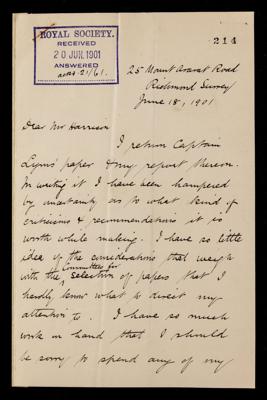 ROYAL SOCIETY.
RECEIVED
20 JUN. 1901
ANSWERED
214
25 Mount Ararat Road
Richmond Surrey
June 18, 1901
Dear Mr Harrison
I return Captain
Lyons' paper & my report thereon.
In writing it I have been hampered
by uncertainty as to what kind of
criticisms & recommendations it is
worth while making. I have so little
idea of the considerations that weigh
with the Committee for selection of papers that I
hardly know what to direct my
attention to. I have so much
work in hand that I should
be sorry to spend any of my